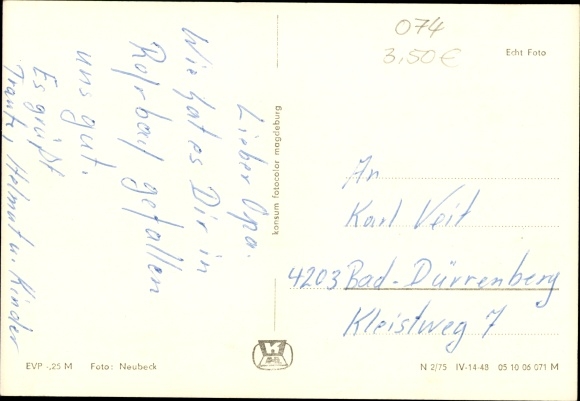 Lieber Opa.
Wie hat es Dir in
Rohrbach gefallen
uns gut.
Es grüßt
Traute, Helmut u. Kinder
konsum fotocolor magdeburg
074
3,50 €
Echt Foto
An
Karl Veit
4203 Bad-Dürrenberg
Kleistweg 7
EVP -,25 M Foto: Neubeck
N 2/75 IV-14-48 05 10 06 071 M